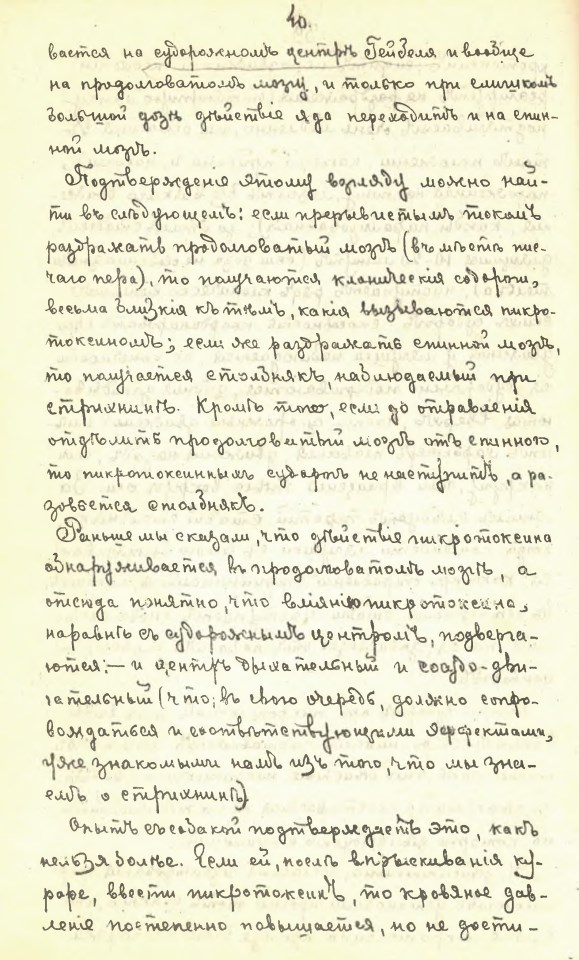 40.
вается на судорожномъ центрѣ Гейзеля и вообще
на продолговатомъ мозгу, и только при слишкомъ
большой дозѣ дѣйствіе яда переходитъ и на спин-
ной мозгъ.
Подтвержденіе этому взгляду можно най-
ти въ слѣдующемъ: если прерывистымъ токомъ
раздражать продолговатый мозгъ (въ мѣстѣ пис-
чаго пера), то получаются клоническія судороги,
весьма близкія къ тѣмъ, какія вызываются пикро-
токсиномъ; если же раздражать спинной мозгъ,
то получается столбнякъ, наблюдаемый при
стрихнинѣ. Кромѣ того, если до отравленія
отдѣлить продолговатый мозгъ отъ спинного,
то пикротоксинныхъ судорогъ не наступитъ, а ра-
зовьется столбнякъ.
Раньше мы сказали, что дѣйствіе пикротоксина
обнаруживается въ продолговатомъ мозгѣ, а
отсюда понятно, что вліянію пикротоксина,
наравнѣ съ судорожнымъ центромъ, подверга-
ются: — и центръ дыхательный и сосудо-дви-
гательный (что, въ свою очередь, должно сопро-
вождаться и соотвѣтствующими эффектами,
уже знакомыми намъ изъ того, что мы зна-
емъ о стрихнинѣ).
Опытъ съ собакой подтверждаетъ это, какъ
нельзя болѣе. Если ей, послѣ впрыскиванія ку-
раре, ввести пикротоксинъ, то кровяное дав-
леніе постепенно повышается, но не дости-